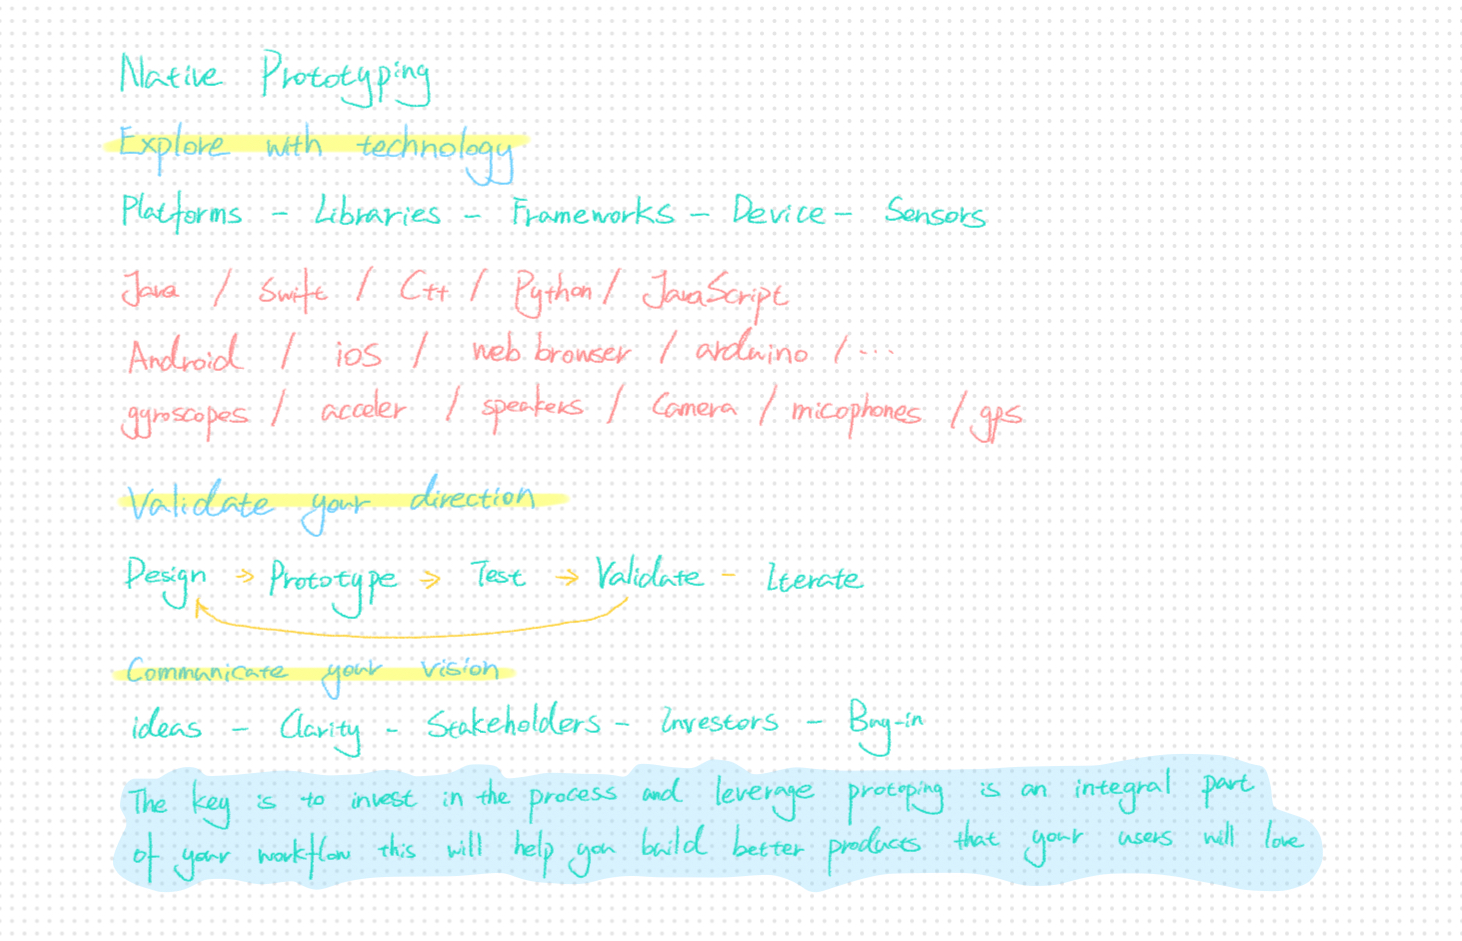 Native Prototyping
Explore with technology
Platforms - Libraries - Frameworks - Device - Sensors
Java / Swift / C++ / Python / JavaScript
Android / iOS / web browser / arduino / ...
gyroscopes / acceler / speakers / Camera / micophones / gps
Validate your direction
Design → Prototype → Test → Validate - Iterate
Communicate your vision
ideas - Clarity - Stakeholders - Investors - Buy-in
The key is to invest in the process and leverage protoping is an integral part
of your workflow this will help you build better products that your users will love